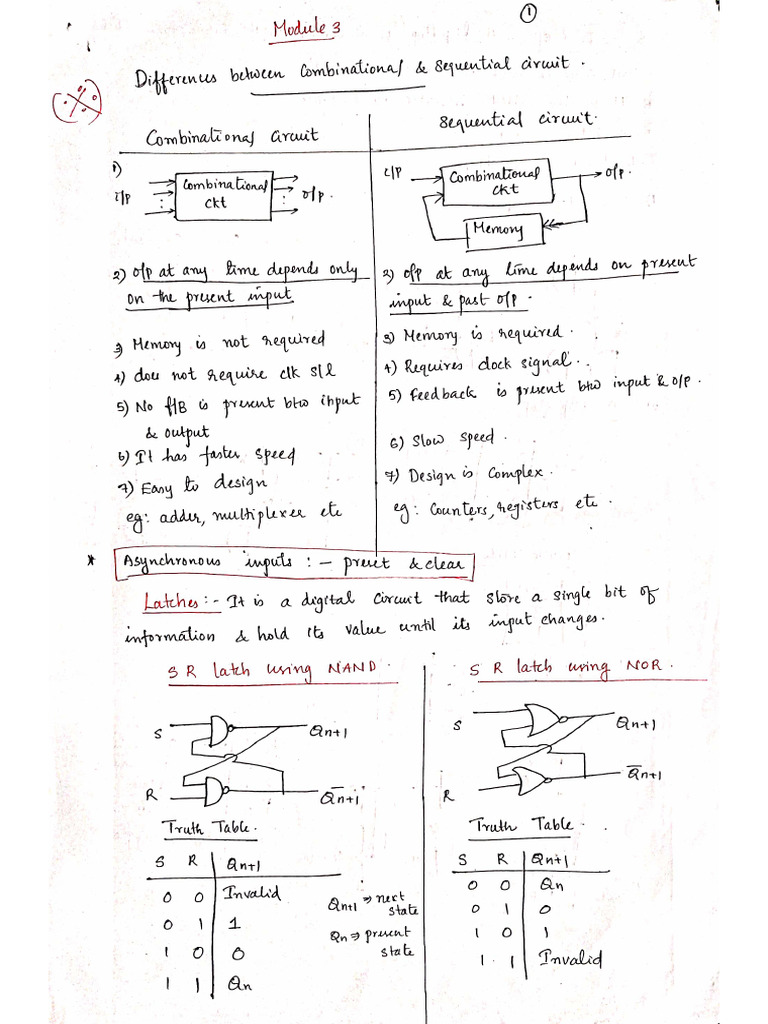 1
Module 3
Differences between Combinational & Sequential circuit.
Combinational Circuit
1)
i/p
Combinational
ckt
o/p.
2) o/p at any time depends only
on the present input
3) Memory is not required
4) does not require clk s/l
5) No f/B is present btw input
& output
6) It has faster speed
7) Easy to design
eg: adder, multiplexer etc
Sequential Circuit.
i/p
Combinational
ckt
o/p.
Memory
2) o/p at any time depends on present
input & past o/p.
3) Memory is required.
4) Requires clock signal.
5) feedback is present btw input & o/p.
6) Slow speed.
7) Design is complex.
eg: Counters, registers etc.
* Asynchronous inputs :- preset & clear
Latches :- It is a digital circuit that store a single bit of
information & hold its value until its input changes.
S R latch using NAND.
S
Qn+1
R
Q̅n+1
Truth Table.
S R Qn+1
0 0 Invalid
0 1 1
1 0 0
1 1 Qn
Qn+1 ⇒ next
state
Qn ⇒ present
state
S R latch using NOR.
S
Qn+1
R
Q̅n+1
Truth Table.
S R Qn+1
0 0 Qn
0 1 0
1 0 1
1 1 Invalid